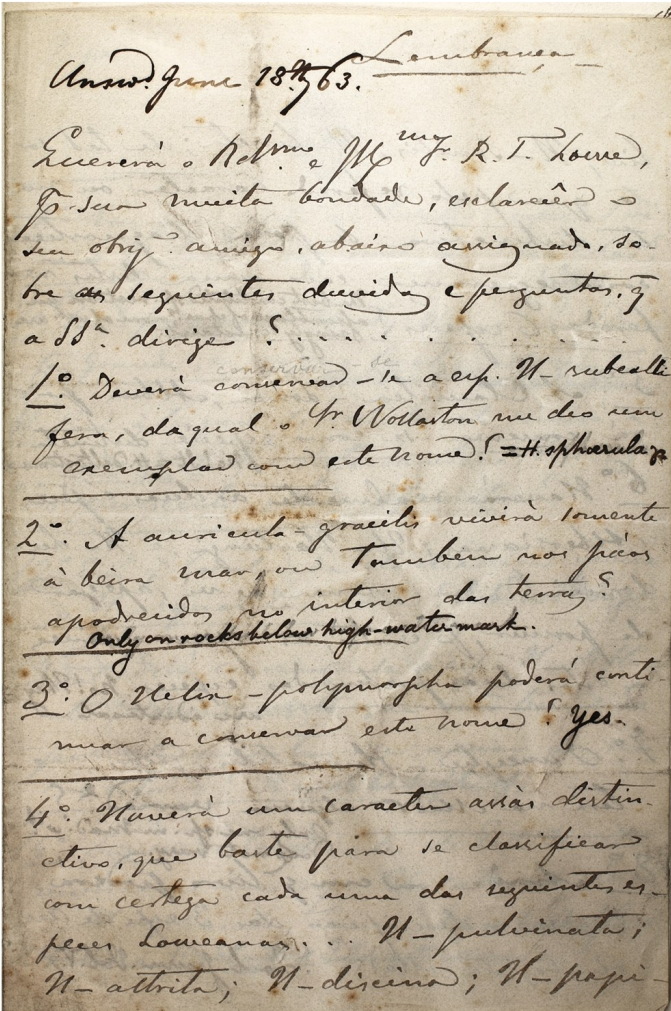 Lembrança
Answd. June 18th/63.
Quererá o Rdmo. e Mr. R. T. Lowe,
p. sua muita bondade, esclarecêr o
seu obrgo. amigo, abaixo assignado, so-
bre as seguintes duvidas e perguntas, q
a SSa. dirige? . . . . . . . .
1.º Deverá conservar-se a esp. H- subcalli-
fera, da qual o Sr. Wollaston me deo um
exemplar com este nome? =H. sphaerula
2.º A auricula-gracilis vivirà somente
à beira mar, ou tambem nos páos
apodrecidos no interior das terras?
Only on rocks below high-water mark.
3.º O Helix-polymorpha poderá conti-
nuar a conservar este nome? Yes.
4.º Haverá um caracter assàs distin-
ctivo, que baste para se classificar
com certeza cada uma das seguintes es-
peces Loweanas... H-pulvinata;
H-attrita; H-discina; H-papi-